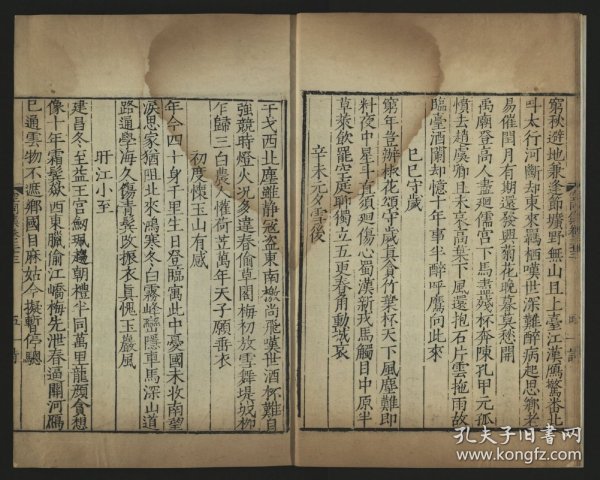 窮秋避地兼逢節曠野無山且上臺江漢鴈驚番上
斗太行河斷却東來羈栖嘆世深難醉病起思鄉老
易催閏月有期還發興菊花晚暮莫愁開
禹廟登高人盡迴儒宮下馬盡殘杯奔陳孔甲元孤
憤去趙虞卿且未哀高葉下風還抱石片雲拖雨故
臨臺酒闌却憶十年事半醉呼鷹向此來
己巳守歲
窮年豈辦椒花頌守歲真貪竹葉杯天下風塵難即
料夜中星斗直須迴傷心蜀漢新戎馬觸目中原半
草萊飲罷空庭聊獨立五更春角動城哀
辛未元夕雪後
干戈西北塵雖静冠盜東南檄尚飛嘆世酒杯難自
強競時燈火況多違春偷草閣梅初放雪舞堤城柳
乍歸三白農人催荷芰萬年天子願垂衣
初度懷玉山有感
年今四十身千里生日登臨寓此中憂國未收南望
淚思家猶阻北來鴻寒冬白霧峰巒隱車馬深山道
路通學海久傷青鬢改振衣真愧玉巖風
盱江小至
建昌冬至益王宮劒珮趨朝禮半同萬里龍顔貪想
像十年霜鬢嶽西東臘偷江嶠梅先泄春逼關河鴈
已通雲物不遮鄉國目麻姑今擬暫停驄
孔夫子旧书网
www.kongfz.com